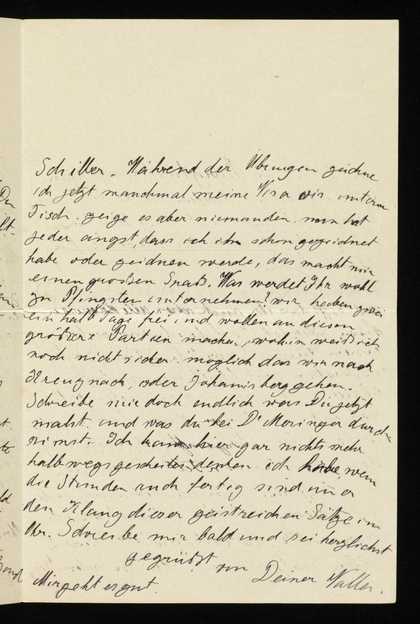 Schiller. Während der Übungen zeichne
ich jetzt manchmal meine vis a vis unterm
Tisch. zeige es aber niemanden. nun hat
jeder angst, dass ich ihn schon gezeichnet
habe oder zeichnen werde, das macht mir
einen grossen Spass. Was werdet Ihr wohl
zu Pfingsten unternehmen? wir haben zwei
ein halb Tage frei und wollen an diesen
größere Partien machen, wohin weiß ich
noch nicht sicher. möglich das wir nach
Kreuznach, oder Johanisberg gehen.
Schreibe mir doch endlich was Du jetzt
malst und was du bei Dr Moringer durch
nimst. Ich kann hier gar nichts mehr
halbwegs gescheites denken ich habe wenn
die Stunden auch fertig sind immer
den Klang dieser geistreichen Sätze im
Ohr. Schreibe mir bald und sei herzlichst
gegrüßt von Deiner
Mir geht es gut.